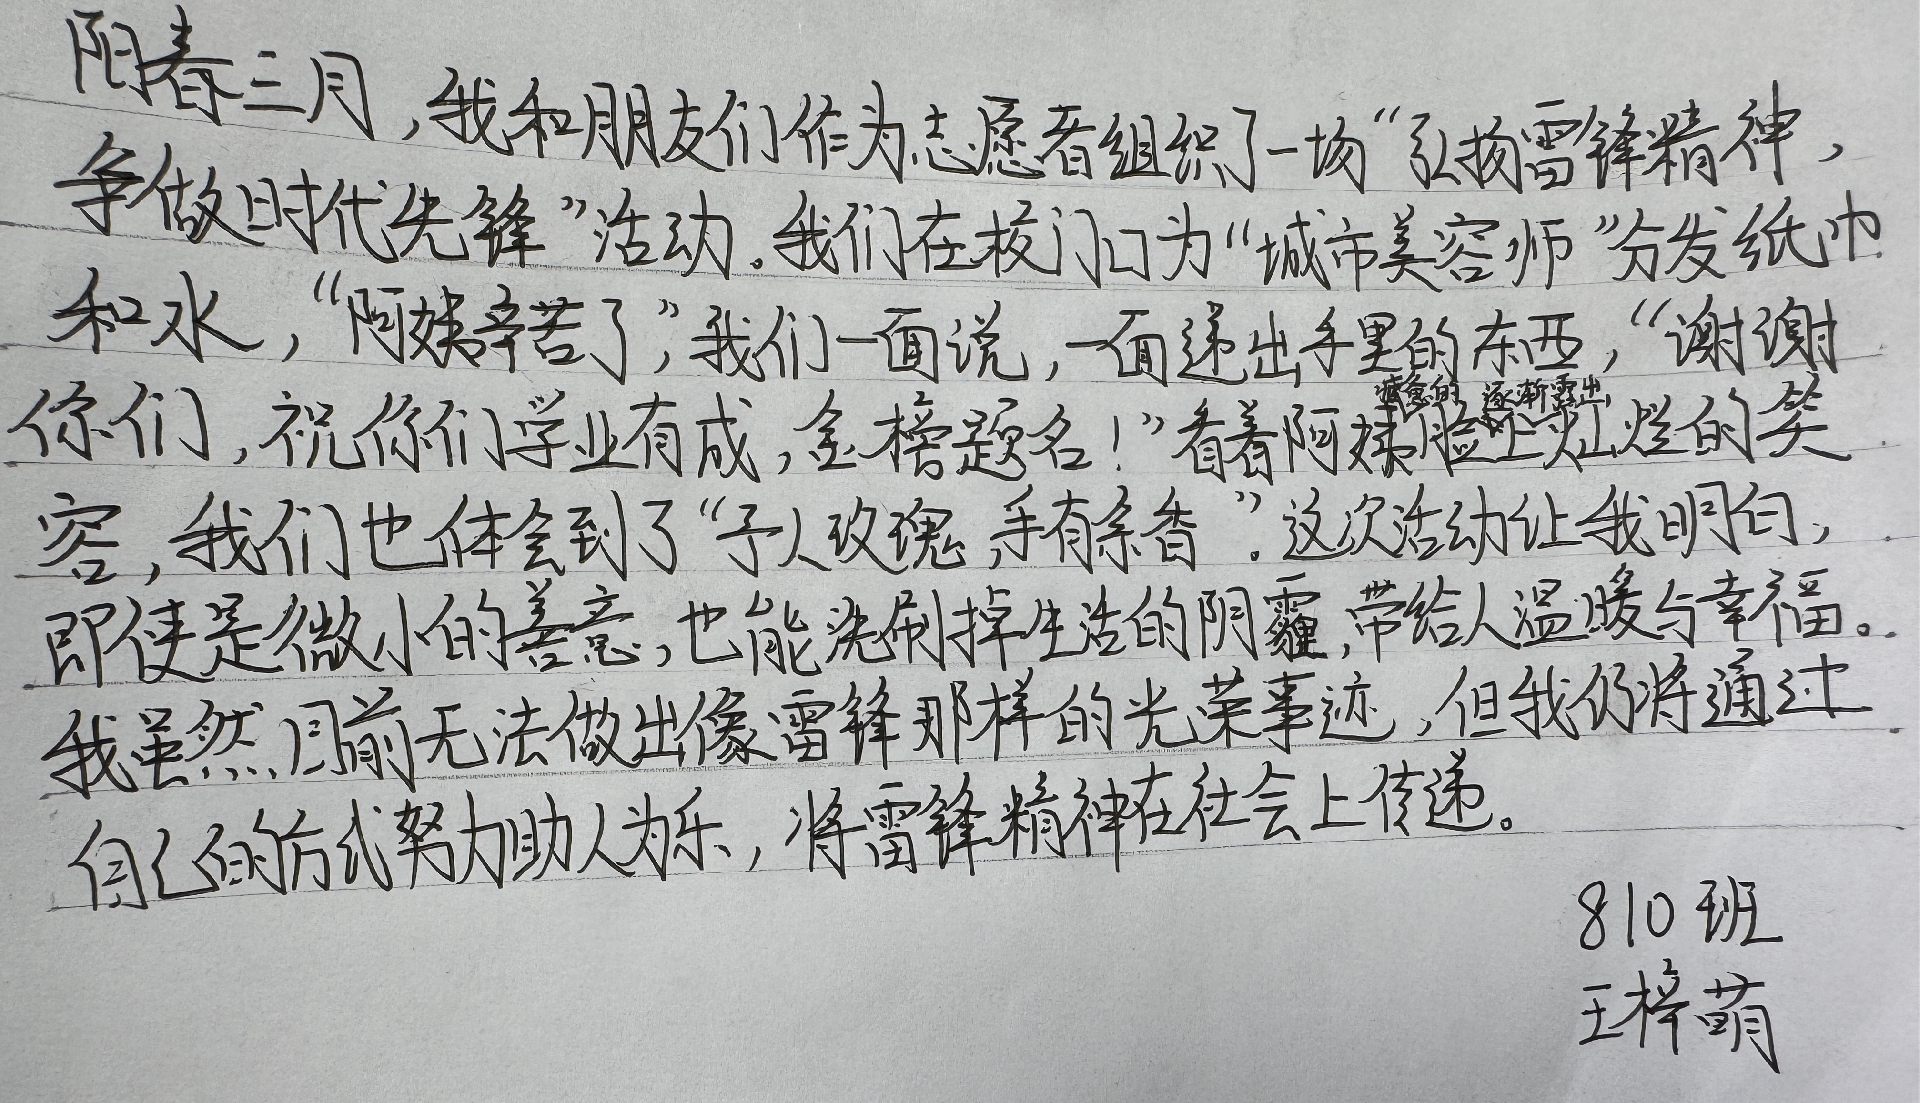 阳春三月，我和朋友们作为志愿者组织了一场“弘扬雷锋精神，
争做时代先锋”活动。我们在校门口为“城市美容师”分发纸巾
和水，“阿姨辛苦了”，我们一面说，一面递出手里的东西，“谢谢
你们，祝你们学业有成，金榜题名！”看着阿姨疲惫的脸上逐渐露出灿烂的笑
容，我们也体会到了“予人玫瑰，手有余香”。这次活动让我明白，
即使是微小的善意，也能洗刷掉生活的阴霾，带给人温暖与幸福。
我虽然目前无法做出像雷锋那样的光荣事迹，但我仍将通过
自己的方式努力助人为乐，将雷锋精神在社会上传递。
810班
王梓萌